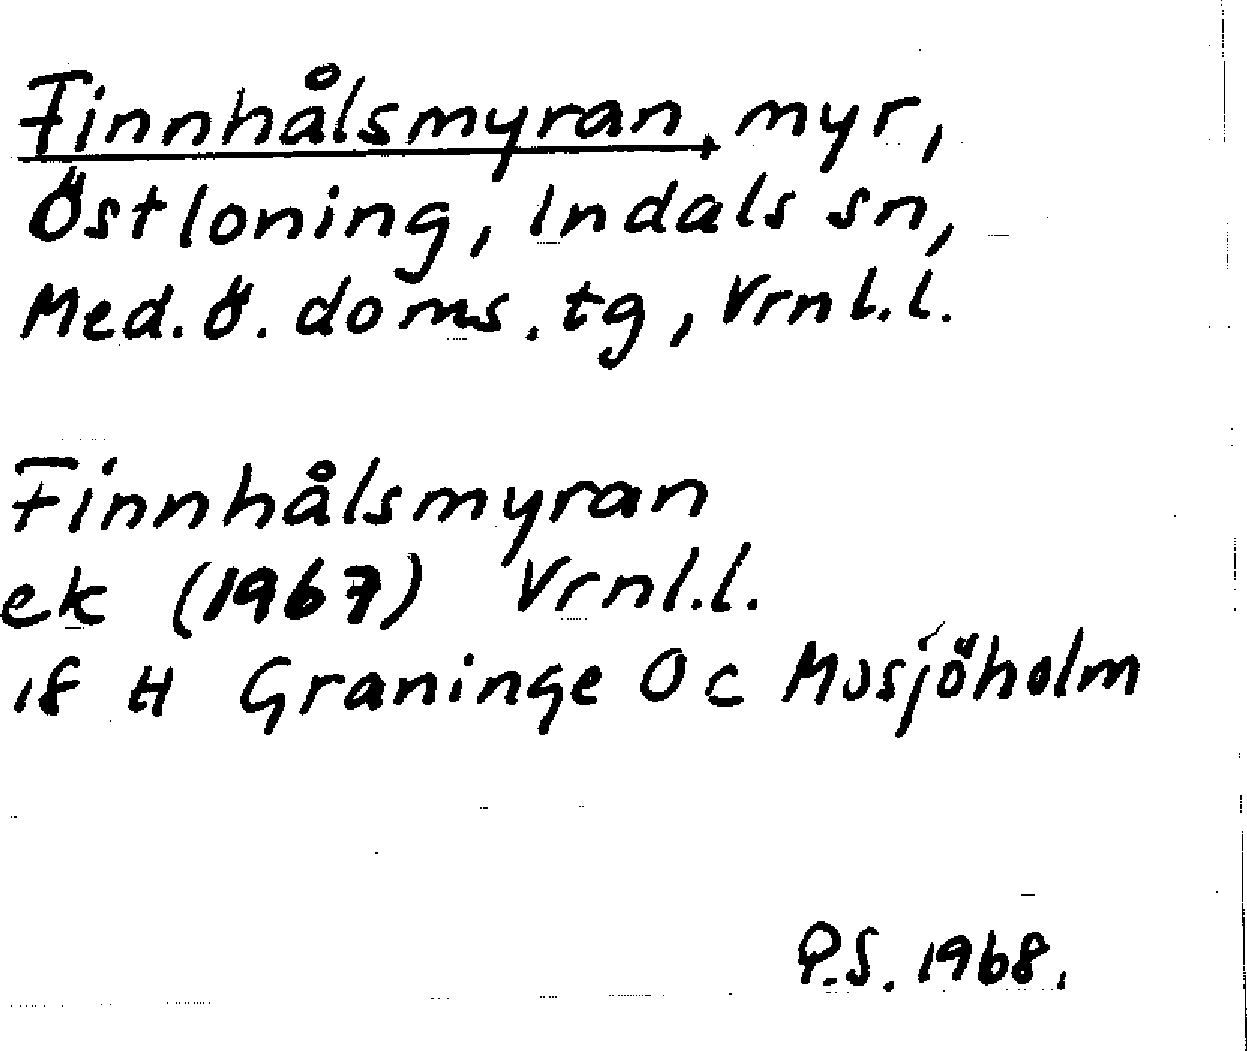 Finnhålsmyran, myr,
Östloning, Indals sn,
Med. Ö. doms. tg, Vrnl.l.
Finnhålsmyran
ek (1967) Vrnl.l.
18 H Graninge 0 c Mosjöholm
P.S. 1968.